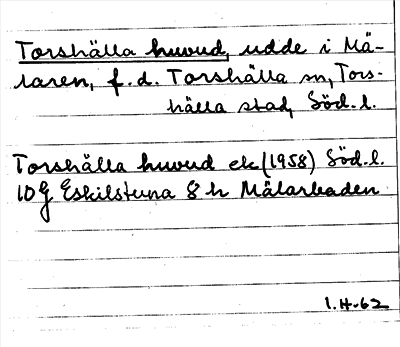 Torshälla huvud, udde i Mä-
laren, f.d. Torshälla sn, Tors-
hälla stad, Söd. l.
Torshälla huvud ek (1958) Söd. l.
10 g Eskilstuna 8 h Mälarbaden
1.H-62